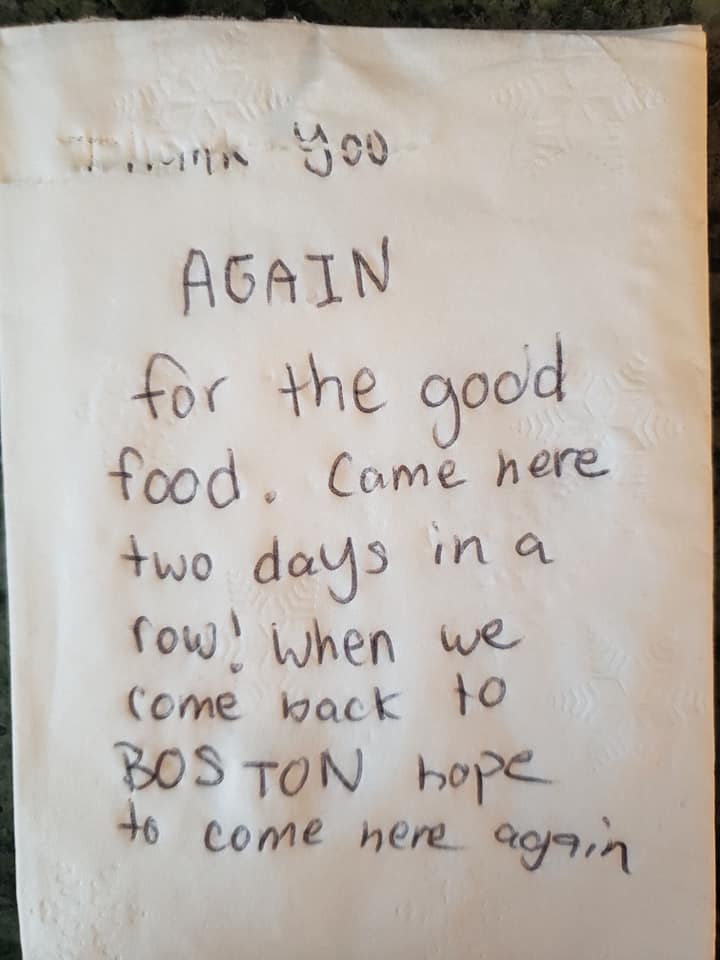 Thank you
AGAIN
for the good
food. Came here
two days in a
row! When we
come back to
BOSTON hope
to come here again